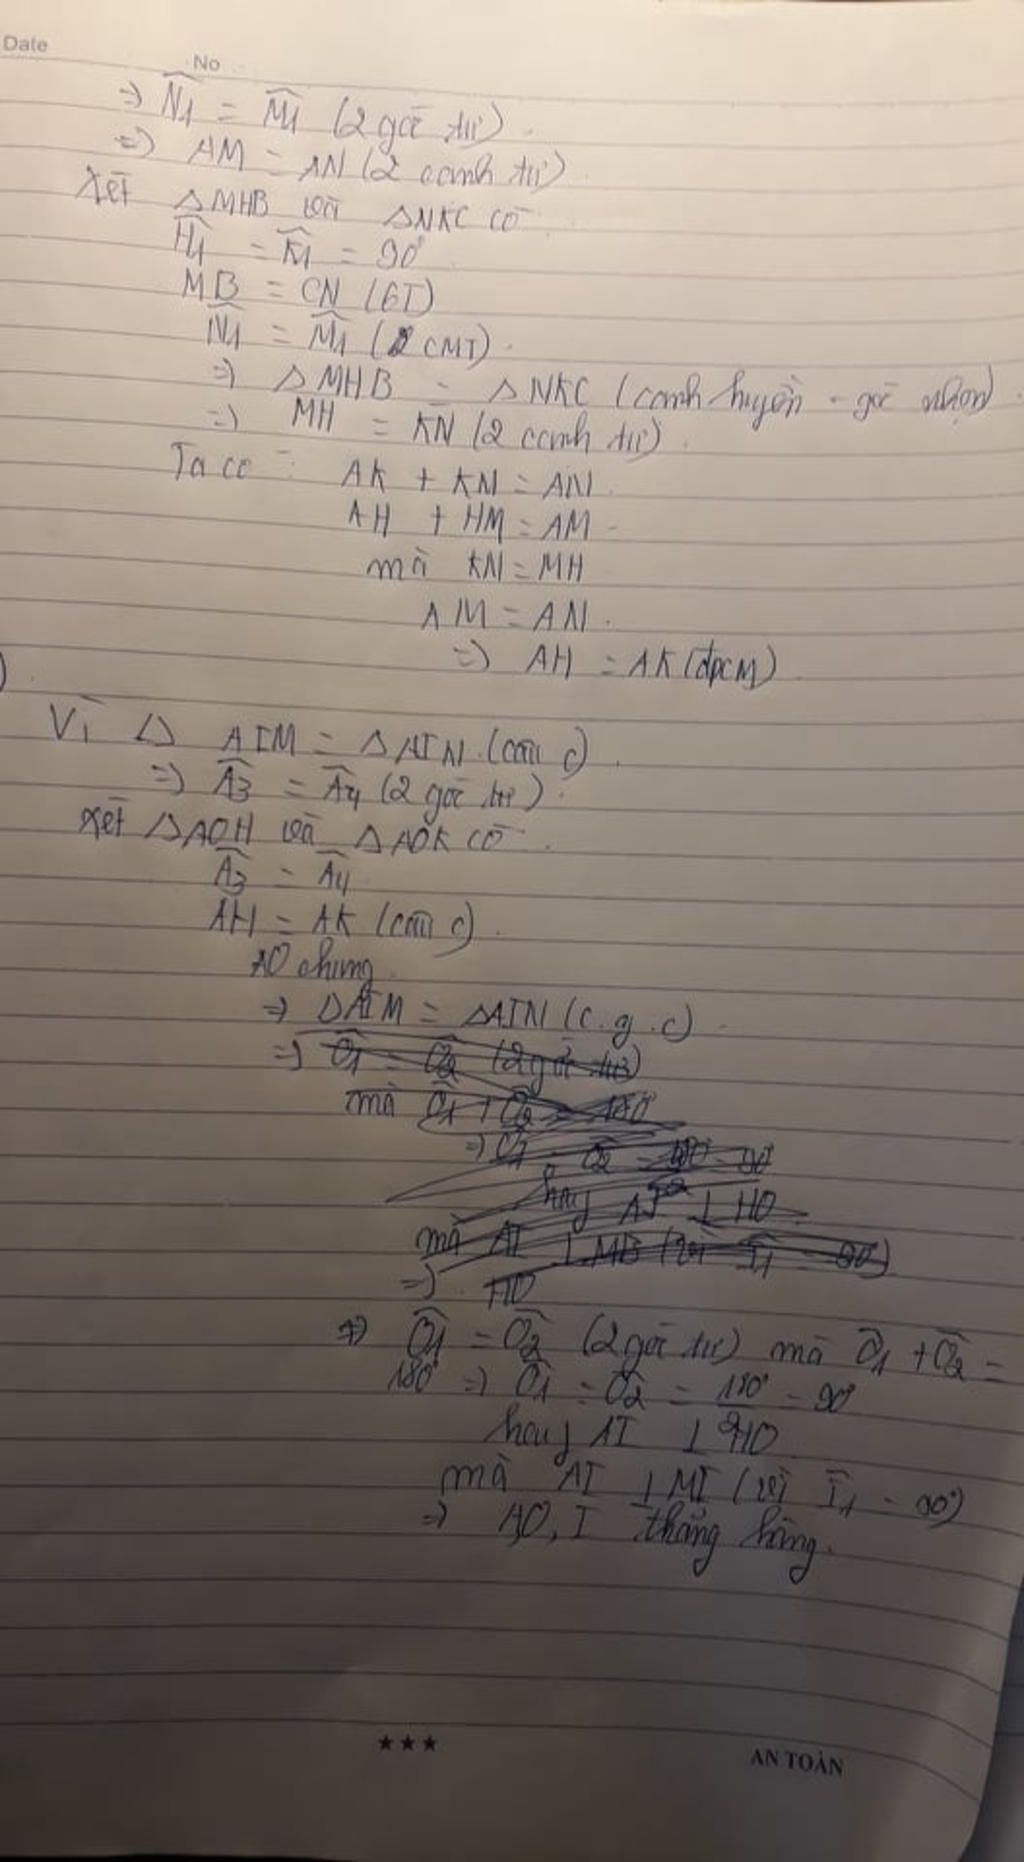 Date
No
=> N1 = M1 (2 góc tư)
=> AM = AN (2 cạnh tư)
Xét △MHB và △NKC có
H1 = K1 = 90°
MB = CN (GT)
N1 = M1 (CMT)
=> △MHB = △NKC (cạnh huyền - góc nhọn)
=> MH = KN (2 cạnh tư)
Ta có: AK + KN = AN
AH + HM = AM
mà KN = MH
AM = AN.
=> AH = AK (đpcM)
Vì △ AIM = △AIN (câu c)
=> A3 = A4 (2 góc tư)
Xét △AOH và △AOK có
A3 = A4
AH = AK (câu c)
AO chung
=> △AIM = △AIN (c.g.c)
=> O1 = O2 (2 góc tư)
mà O1 + O2 = 180°
=> O1 = O2 = 180° 90°
hay AI ⊥ HO
mà AI ⊥ MB (vì I1 = 90°)
=> HO
=> O1 = O2 (2 góc tư) mà O1 + O2 =
180° => O1 = O2 = 180°/2 = 90°
hay AI ⊥ HO
mà AI ⊥ MI (vì I1 = 90°)
=> A,O,I thẳng hàng.
★★★
AN TOÀN